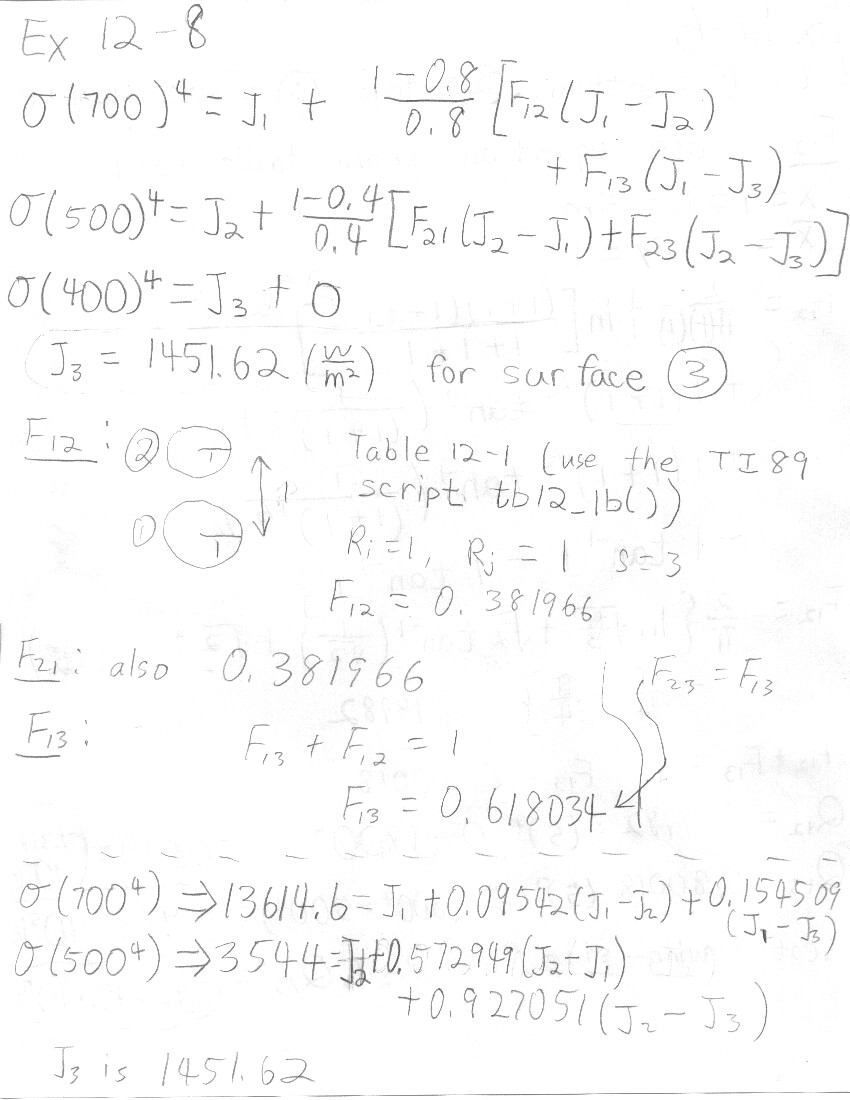 Ex 12-8
σ(700)⁴ = J₁ + (1-0.8)/0.8 [F₁₂(J₁-J₂)
+ F₁₃(J₁-J₃)
σ(500)⁴ = J₂ + (1-0.4)/0.4 [F₂₁(J₂-J₁)+F₂₃(J₂-J₃)]
σ(400)⁴ = J₃ + 0
J₃ = 1451.62 (W/m²) for surface ③
F₁₂ : ② 1 Table 12-1 (use the TI89
script tb12_1b())
① 1 1
Rᵢ=1, Rⱼ = 1 s=3
F₁₂ = 0.381966
F₂₁: also 0.381966
F₂₃ = F₁₃
F₁₃: F₁₃ + F₁₂ = 1
F₁₃ = 0.618034
σ(700⁴) ⇒ 13614.6 = J₁ +0.09542(J₁-J₂) +0.154509
(J₁-J₃)
σ(500⁴) ⇒ 3544 = J₂+0.572949(J₂-J₁)
+0.927051(J₂-J₃)
J₃ is 1451.62